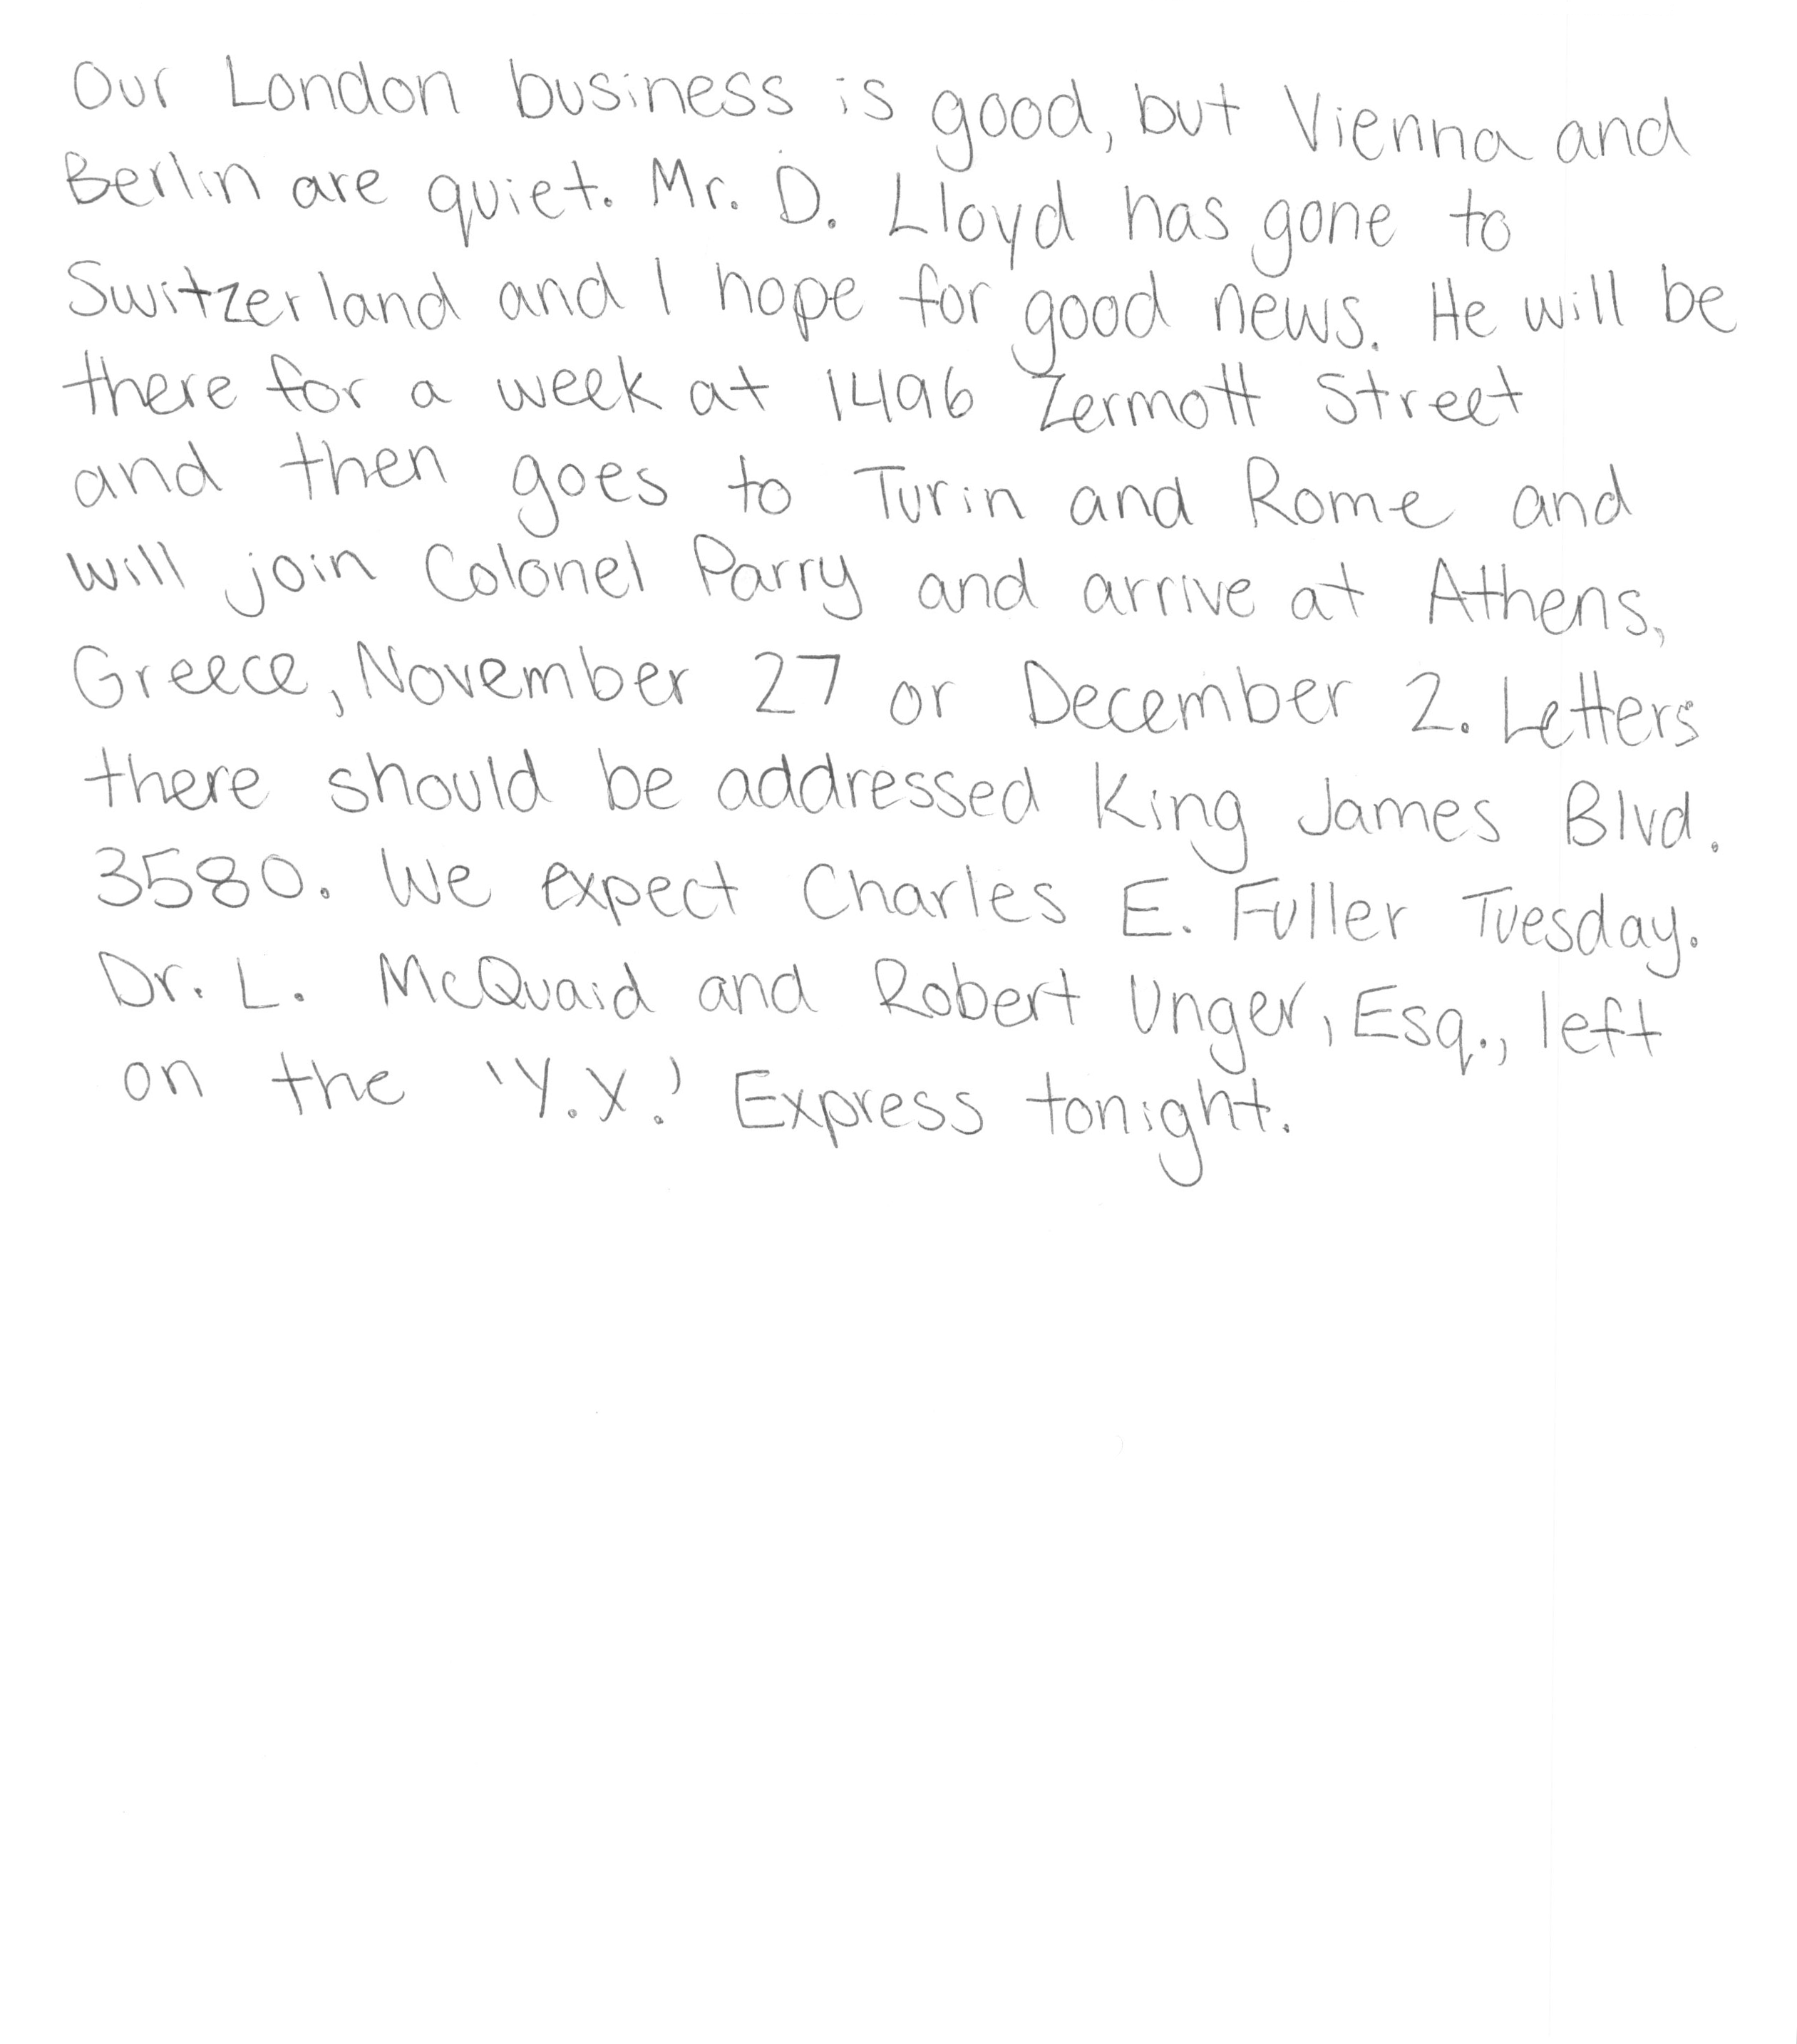 Our London business is good, but Vienna and
Berlin are quiet. Mr. D. Lloyd has gone to
Switzerland and I hope for good news. He will be
there for a week at 1496 Zermott Street
and then goes to Turin and Rome and
will join Colonel Parry and arrive at Athens,
Greece, November 27 or December 2. Letters
there should be addressed King James Blvd.
3580. We expect Charles E. Fuller Tuesday.
Dr. L. McQuaid and Robert Unger, Esq., left
on the 'Y.X.' Express tonight.